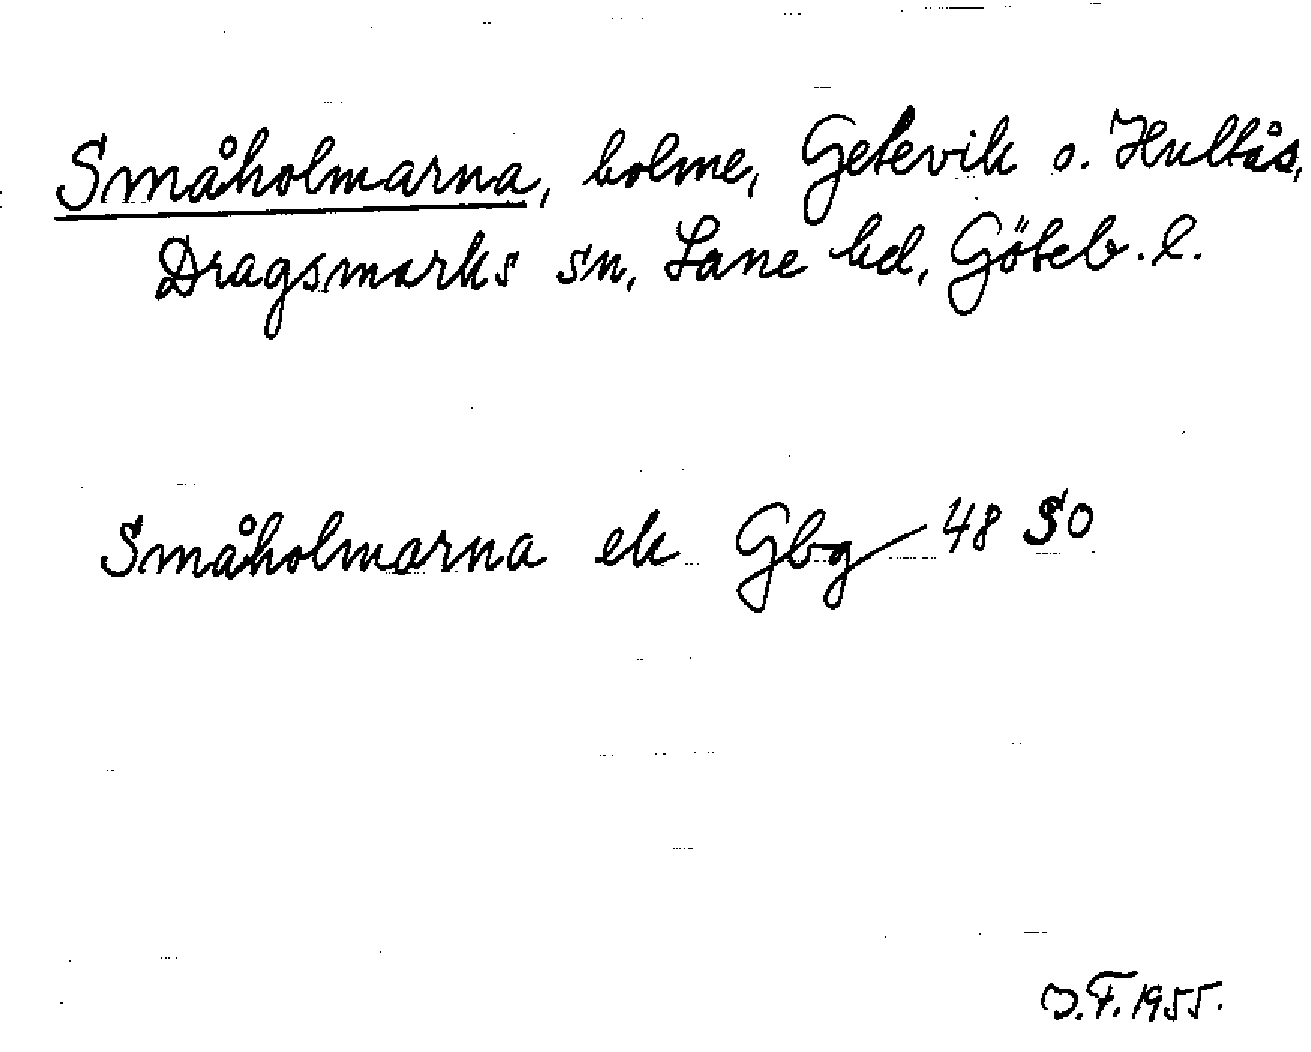 Småholmarna, holme, Getevik o. Hultås,
Dragsmarks sn, Lane hd, Göteb. l.
Småholmarna ek Gbg 48 SO
O.F. 1955.